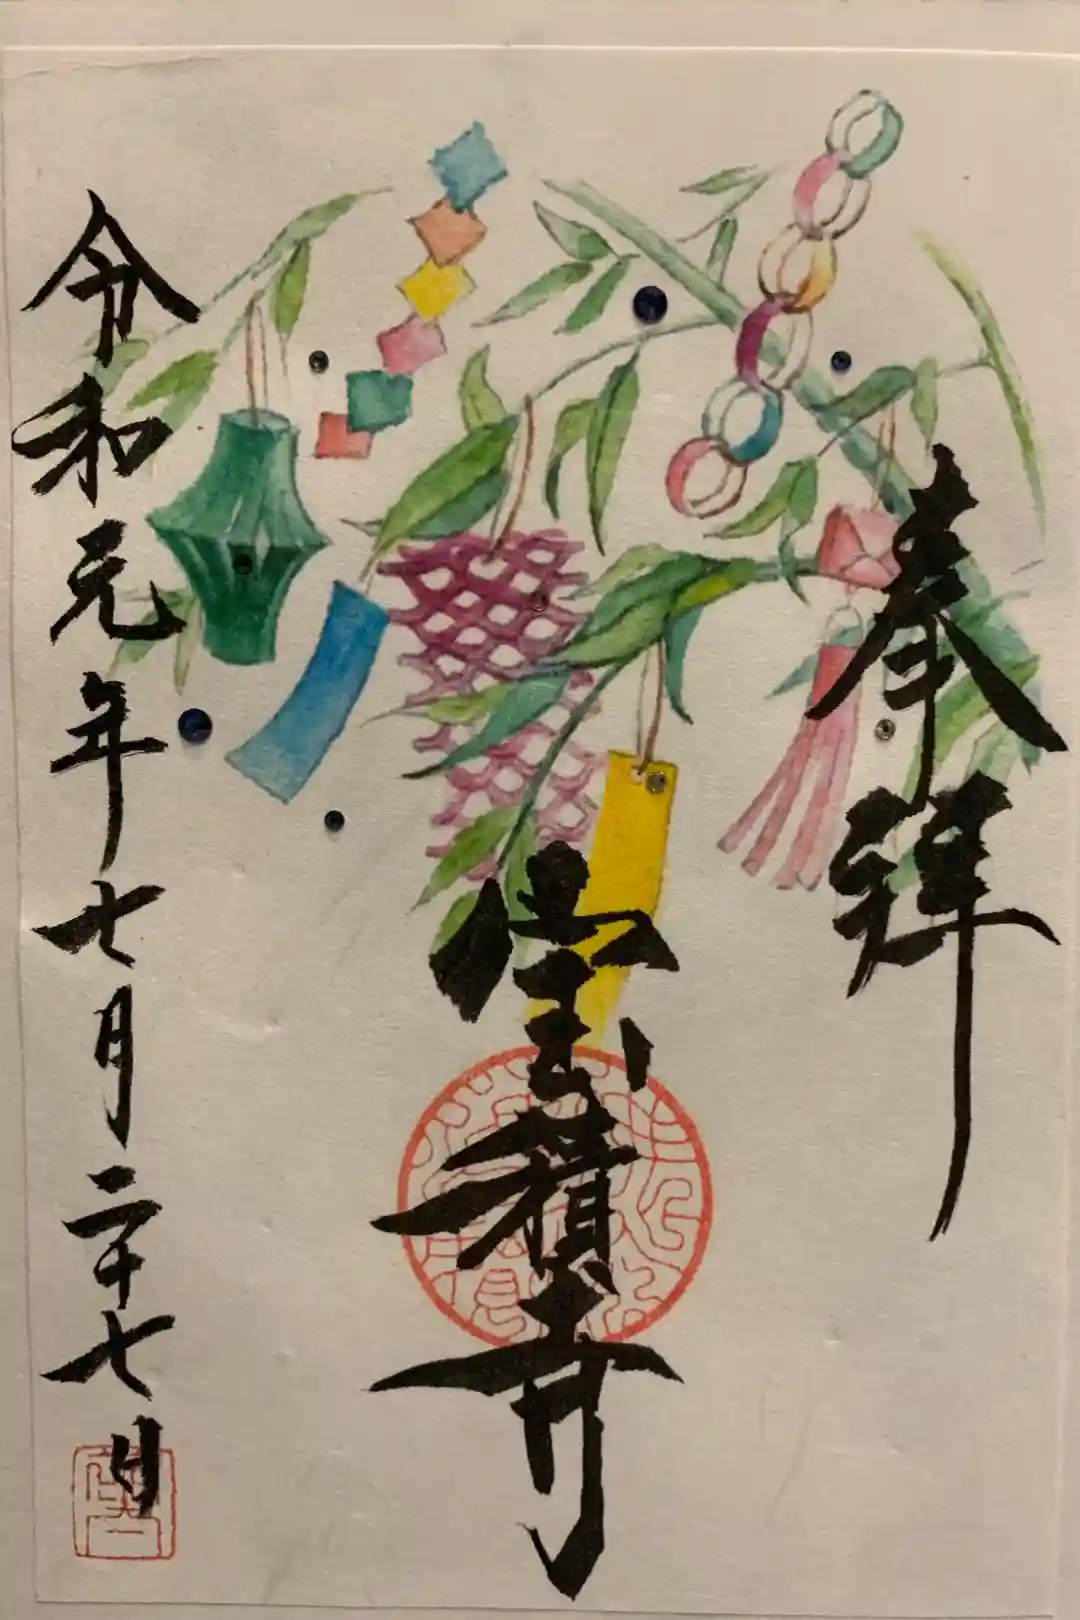 奉拜
宝積寺
令和元年七月二十七日